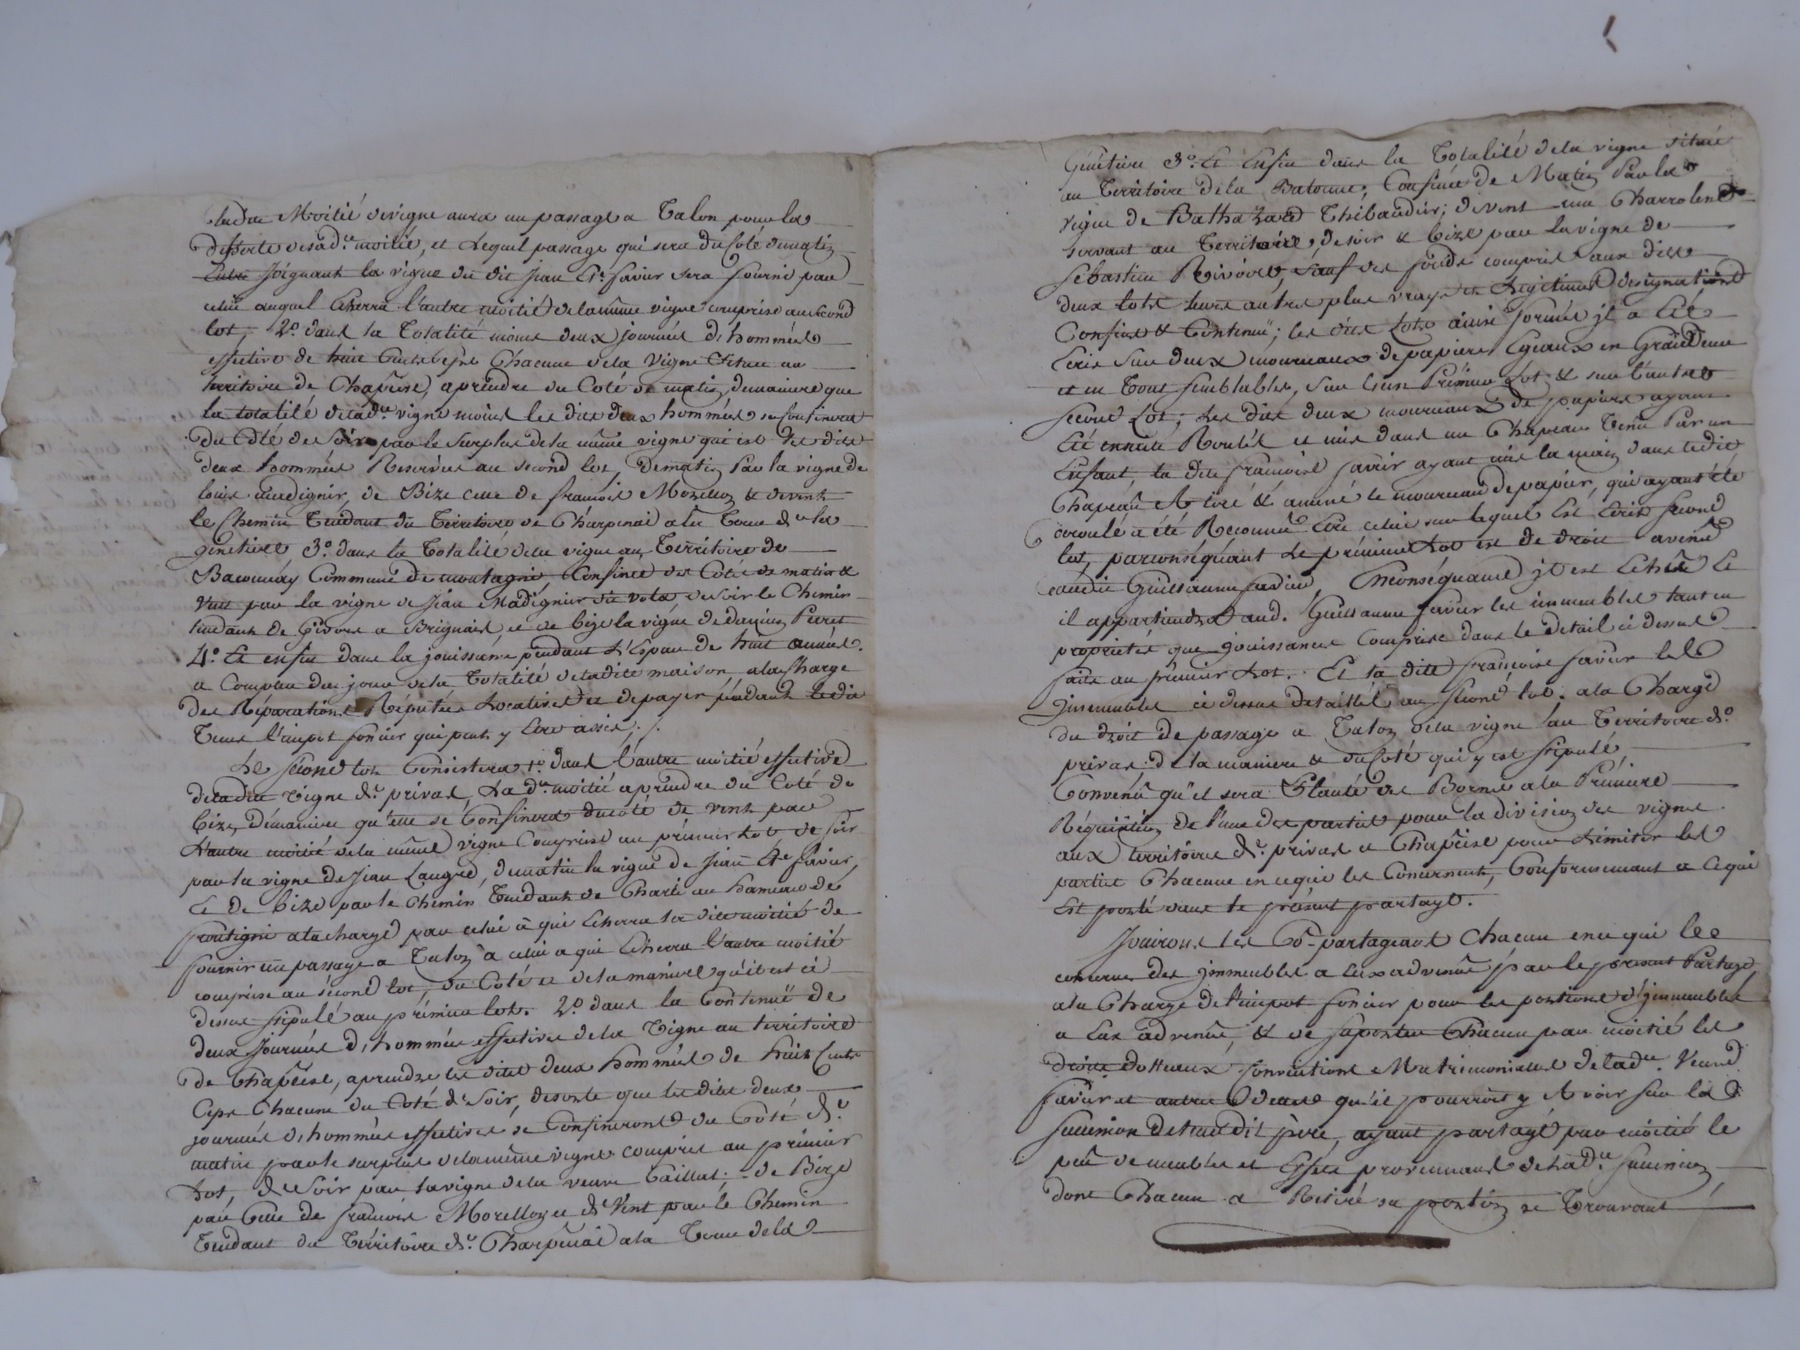 lad.te Moitié de vigne aura un passage a Talon pour la
desserte de sad.te moitié, et Lequel passage qui sera du Coté de matin
joignant la vigne du dit Jean Bte favier sera fourni par
celui auquel Echerra l'autre moitié de la même vigne comprise au second
lot, 2.o dans la Totalité moins deux journées d'hommées
effective de huit Cents Ceps Chacune de la Vigne Située au
territoire de Chapêise, a prendre du Coté de matin, demaniere que
la totalité de lad.te vigne moins les dites deux hommées se Confinera
du Côté de Soir par le Surplus de la même vigne qui est Les dites
deux hommées Reservées au second lot, De matin Par la vigne de
louis madignier, de Bize celle de francois Morellon & de vent
le Chemin Tendant du Territoire de Charpenai a la Terre de la
Genetiere 3.o dans la Totalité de la vigne au Territoire de
Commune de montagni, Confinée du Coté de matin &
Vent par la vigne de Jean Madignier de soir le Chemin
tendant de Givors a Brignais, et de bize la vigne de Peret
4.o Et enfin dans la jouissance pendant L'Espace de huit années
a Compter du jour de la Totalité de ladite maison a la Charge
des Réparations Réputées Locatives et de payer pendant ledit
Tems l'impot foncier qui peut y être assis ./.
Le second lot Consistera 1.o dans l'autre moitié effective
de ladite vigne de privas, La d.te moitié a prendre du Coté de
bize, demaniere qu'elle se Confinera du coté de vent par
L'autre moitié de la même vigne Comprise au premier Lot de soir
par la vigne de Jean Laugre, de matin la vigne de Jean Bte favier,
Et de bize par le Chemin Tendant de Charli au hameau de
a la charge par celui à qui Echerra la dite moitié de
fournir un passage a Talon à celui a qui Echerra l'autre moitié
comprise au second lot, du Coté et de la maniere qu'il est ci
dessus stipulé au prémier lot. 2.o dans la Contenue de
deux Journées d'hommées effectives de la Vigne au territoire
de Chapêise, a prendre les dites deux hommées de huit Cents
Ceps Chacune du Coté de Soir, de sorte que les dites deux
journées d'hommées effectives se Confineront du Côté de
matin par le surplus de la même vigne compris au premier
Lot, de Soir par la vigne de la veuve Caillat; de Bize
par Celle de francois Morellon et de Vent par le Chemin
Tendant du Territoire de Charpenai a la Terre de la
Genetiere 3.o Et Enfin dans la Totalité de la vigne située
au Territoire de la Confinée de Matin Par la
vigne de Balthazard Thibaudier; de vent un Charroi
servant au Territoire, de soir & bize par la vigne de
Sébastien Rivoire, sauf des fonds compris aux dits
deux lots leurs autres plus vrayes et Légitimes designations
Confins & Contenue; les dits Lots ainsi formés il a Eté
Ecrit Sur deux mourceaux de papiers Egeaux en Grandeur
et en Tout semblables, Sur L'un Prémier Lot & sur l'autre
second Lot; Les dits deux mourceaux de papiers ayant
Eté ensuite Roulés et mis dans un Chapeau Tenu Par un
Enfant, la dite francoise favier ayant mis la main dans ledit
Chapeau A tiré & amené le mourceau de papier, qui ayant été
deroulé a été Reconnu Etre celui sur lequel Est Ecrit second
lot, par conséquant Le prémier Lot est de droit avenu
audit Guillaume favier, En Conséquance il est
il appartiendra aud. Guillaume favier les immeubles tant en
propriétés que jouissances Comprise dans le detail ci dessus
faits au prémier Lot. Et la dite françoise favier les
immeubles ci dessus detaillés au second lot, a la Charge
du droit de passage a Talon de la vigne au Territoire de
privas de la maniere & du Coté qui y est stipulé
Convenu qu'il sera Planté des Bornes a la Prémiere
Réquisition de l'une des parties pour la division des vignes
aux territoires de privas et Chapêise pour Limiter les
parties Chacune en ce qui les Concernent, Conformement a Ce qui
Est porté dans le présent partage.
Jouiront Les Co-partageant Chacun en ce qui les
concerne des immeubles a Eux advenus par le present Partage
a la Charge de l'impot foncier pour les portions d'immeubles
a Eux advenus & de suporter Chacun par moitié les
droits Dotteaux Conventions Matrimoniales de lad.te Veuve
favier et autres qu'il pourroit y Avoir sur la
succession de leur dit père, ayant partagé par moitié le
peu de meubles et Effets provennants de lad.te succession
dont Chacun a Retiré sa portion se Trouvant